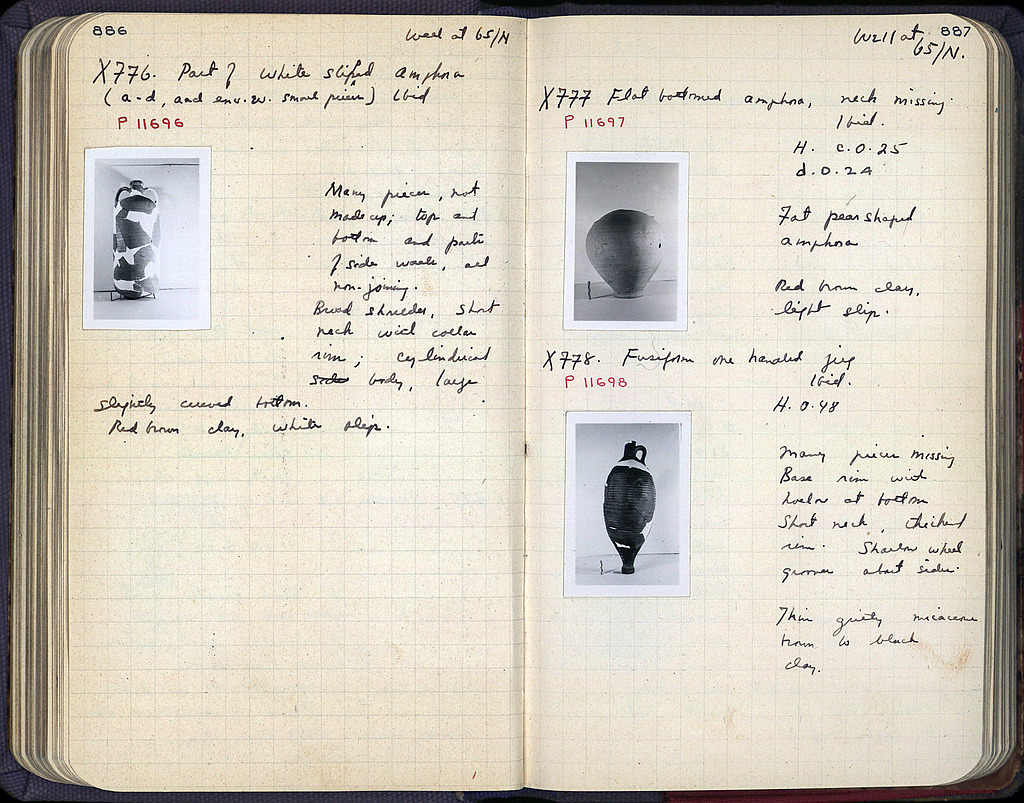 886
Well at 65/N
X776. Part of white slipped amphora
(a-d, and env. w. small pieces) Ibid
P 11696
Many pieces, not
made up; top and
bottom and parts
of side walls, all
non-joining.
Broad shoulder, short
neck with collar
rim; cylindrical
side body, large
slightly curved bottom.
Red brown clay, white slip.
887
Well at
65/N.
X777 Flat bottomed amphora, neck missing.
Ibid.
P 11697
H. c.0.25
d.0.24
Fat pear shaped
amphora
Red brown clay,
light slip.
X778. Fusiform one handled jug
Ibid.
P 11698
H. 0.48
Many pieces missing
Base rim with
hollow at bottom
Short neck, thickened
rim. Shallow wheel
grooves about sides.
Thin gritty micaceous
brown to black
clay.